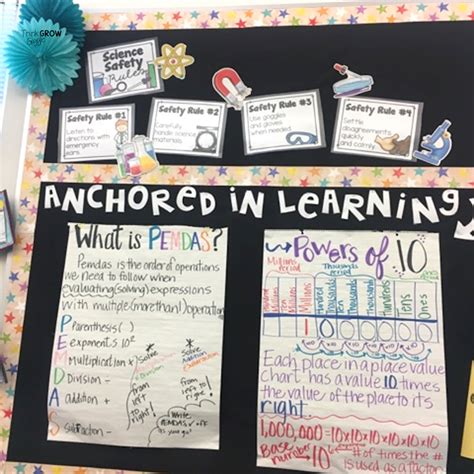 Think GROW
Science
Safety
Rules
Safety Rule #1
Listen to
directions with
emergency
ears.
Safety Rule #2
Carefully
handle science
materials.
Safety Rule #3
Use goggles
and gloves
when needed.
Safety Rule #4
Settle
disagreements
quickly
and calmly.
ANCHORED IN LEARNING
What is PEMDAS?
Pemdas is the order of operations
we need to follow when
evaluating (solving) expressions
with multiple (more than 1) operation
Parenthesis ( )
Exponents 10²
Multiplication x
Division ÷
addition +
subtraction -
Solve
from left
to
right!
Solve
Addition
Subtraction
from
left to
right
Write
PEMDAS
off
as you go
Powers of 10
Millions
Period
Thousands
Period
Millions
Hundred
Thousands
Ten
Thousands
Thousands
Hundreds
Tens
Ones
1 0 0 0 0 0 0
x10 x10 x10 x10 x10 x10
Each place in a place value
chart has a value 10 times
the value of the place to its
right.
1,000,000 = 10x10x10x10x10x10
Base
number
10
6
# of times the #
is used as a factor